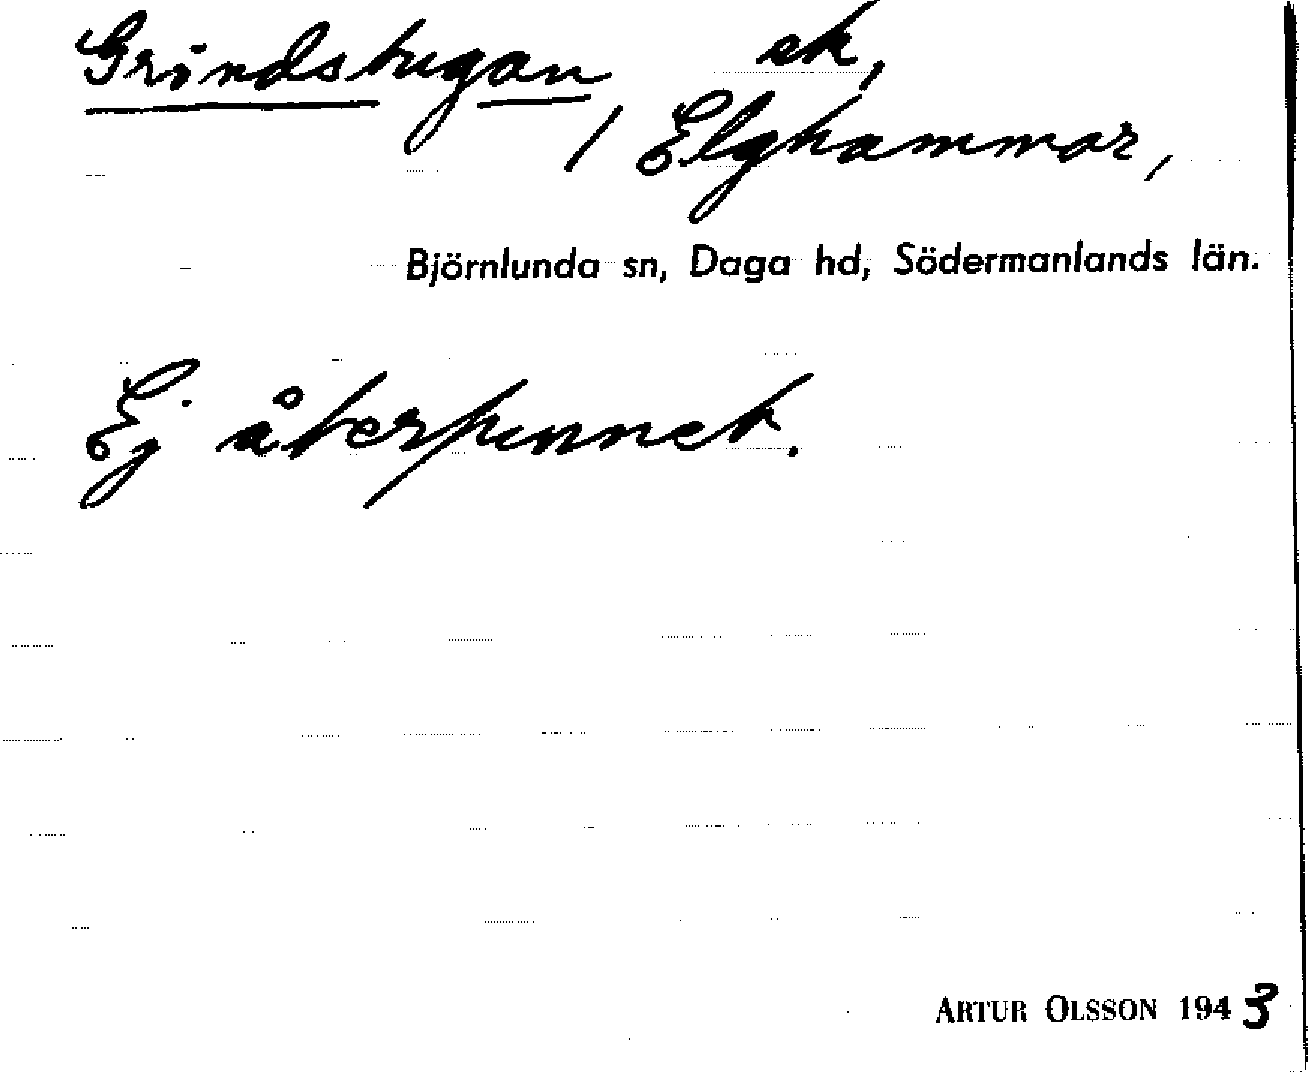 Grindstugan, ek,
Elghammar,
Björnlunda sn, Daga hd, Södermanlands län.
Ej återfunnet.
ARTUR OLSSON 1943